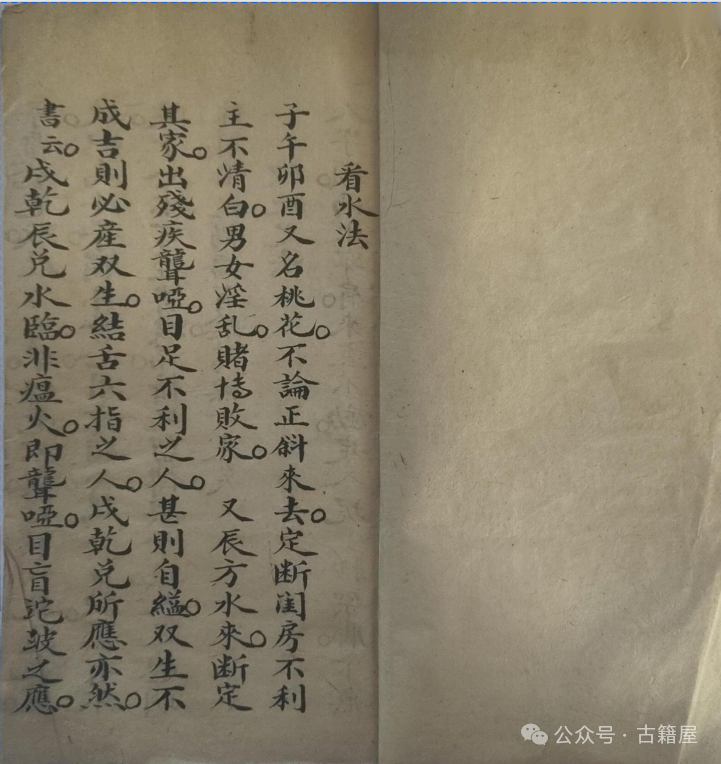 看水法
子午卯酉又名桃花。不論正斜來去。定断闺房不利
主不清白。男女淫乱。賭博敗家。 又辰方水來。断定
其家。出殘疾聾啞。目足不利之人。甚則自縊。双生不
成吉則必産双生。結舌六指之人。戌乾兑所應亦然。
書云。戌乾辰兑水臨。非瘟火。即聾啞。目盲跎跛之應。
公众号·古籍屋